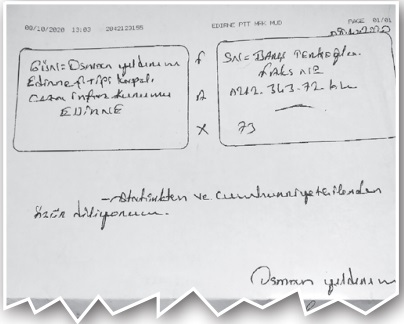 09/10/2020 13:03 2842123155 EDIRNE PTT MRK MUD PAGE 01/01
GÖN= Osman yıldırım
Edirne f tipi kapalı
Ceza infaz kurumu
EDİRNE
F
A
X
SN= BARIŞ TERKOĞLU
faks NO
0212. 343. 72. 64
73
- Atatürkten ve Cumhuriyetcilerden
özür diliyorum.
Osman yıldırım